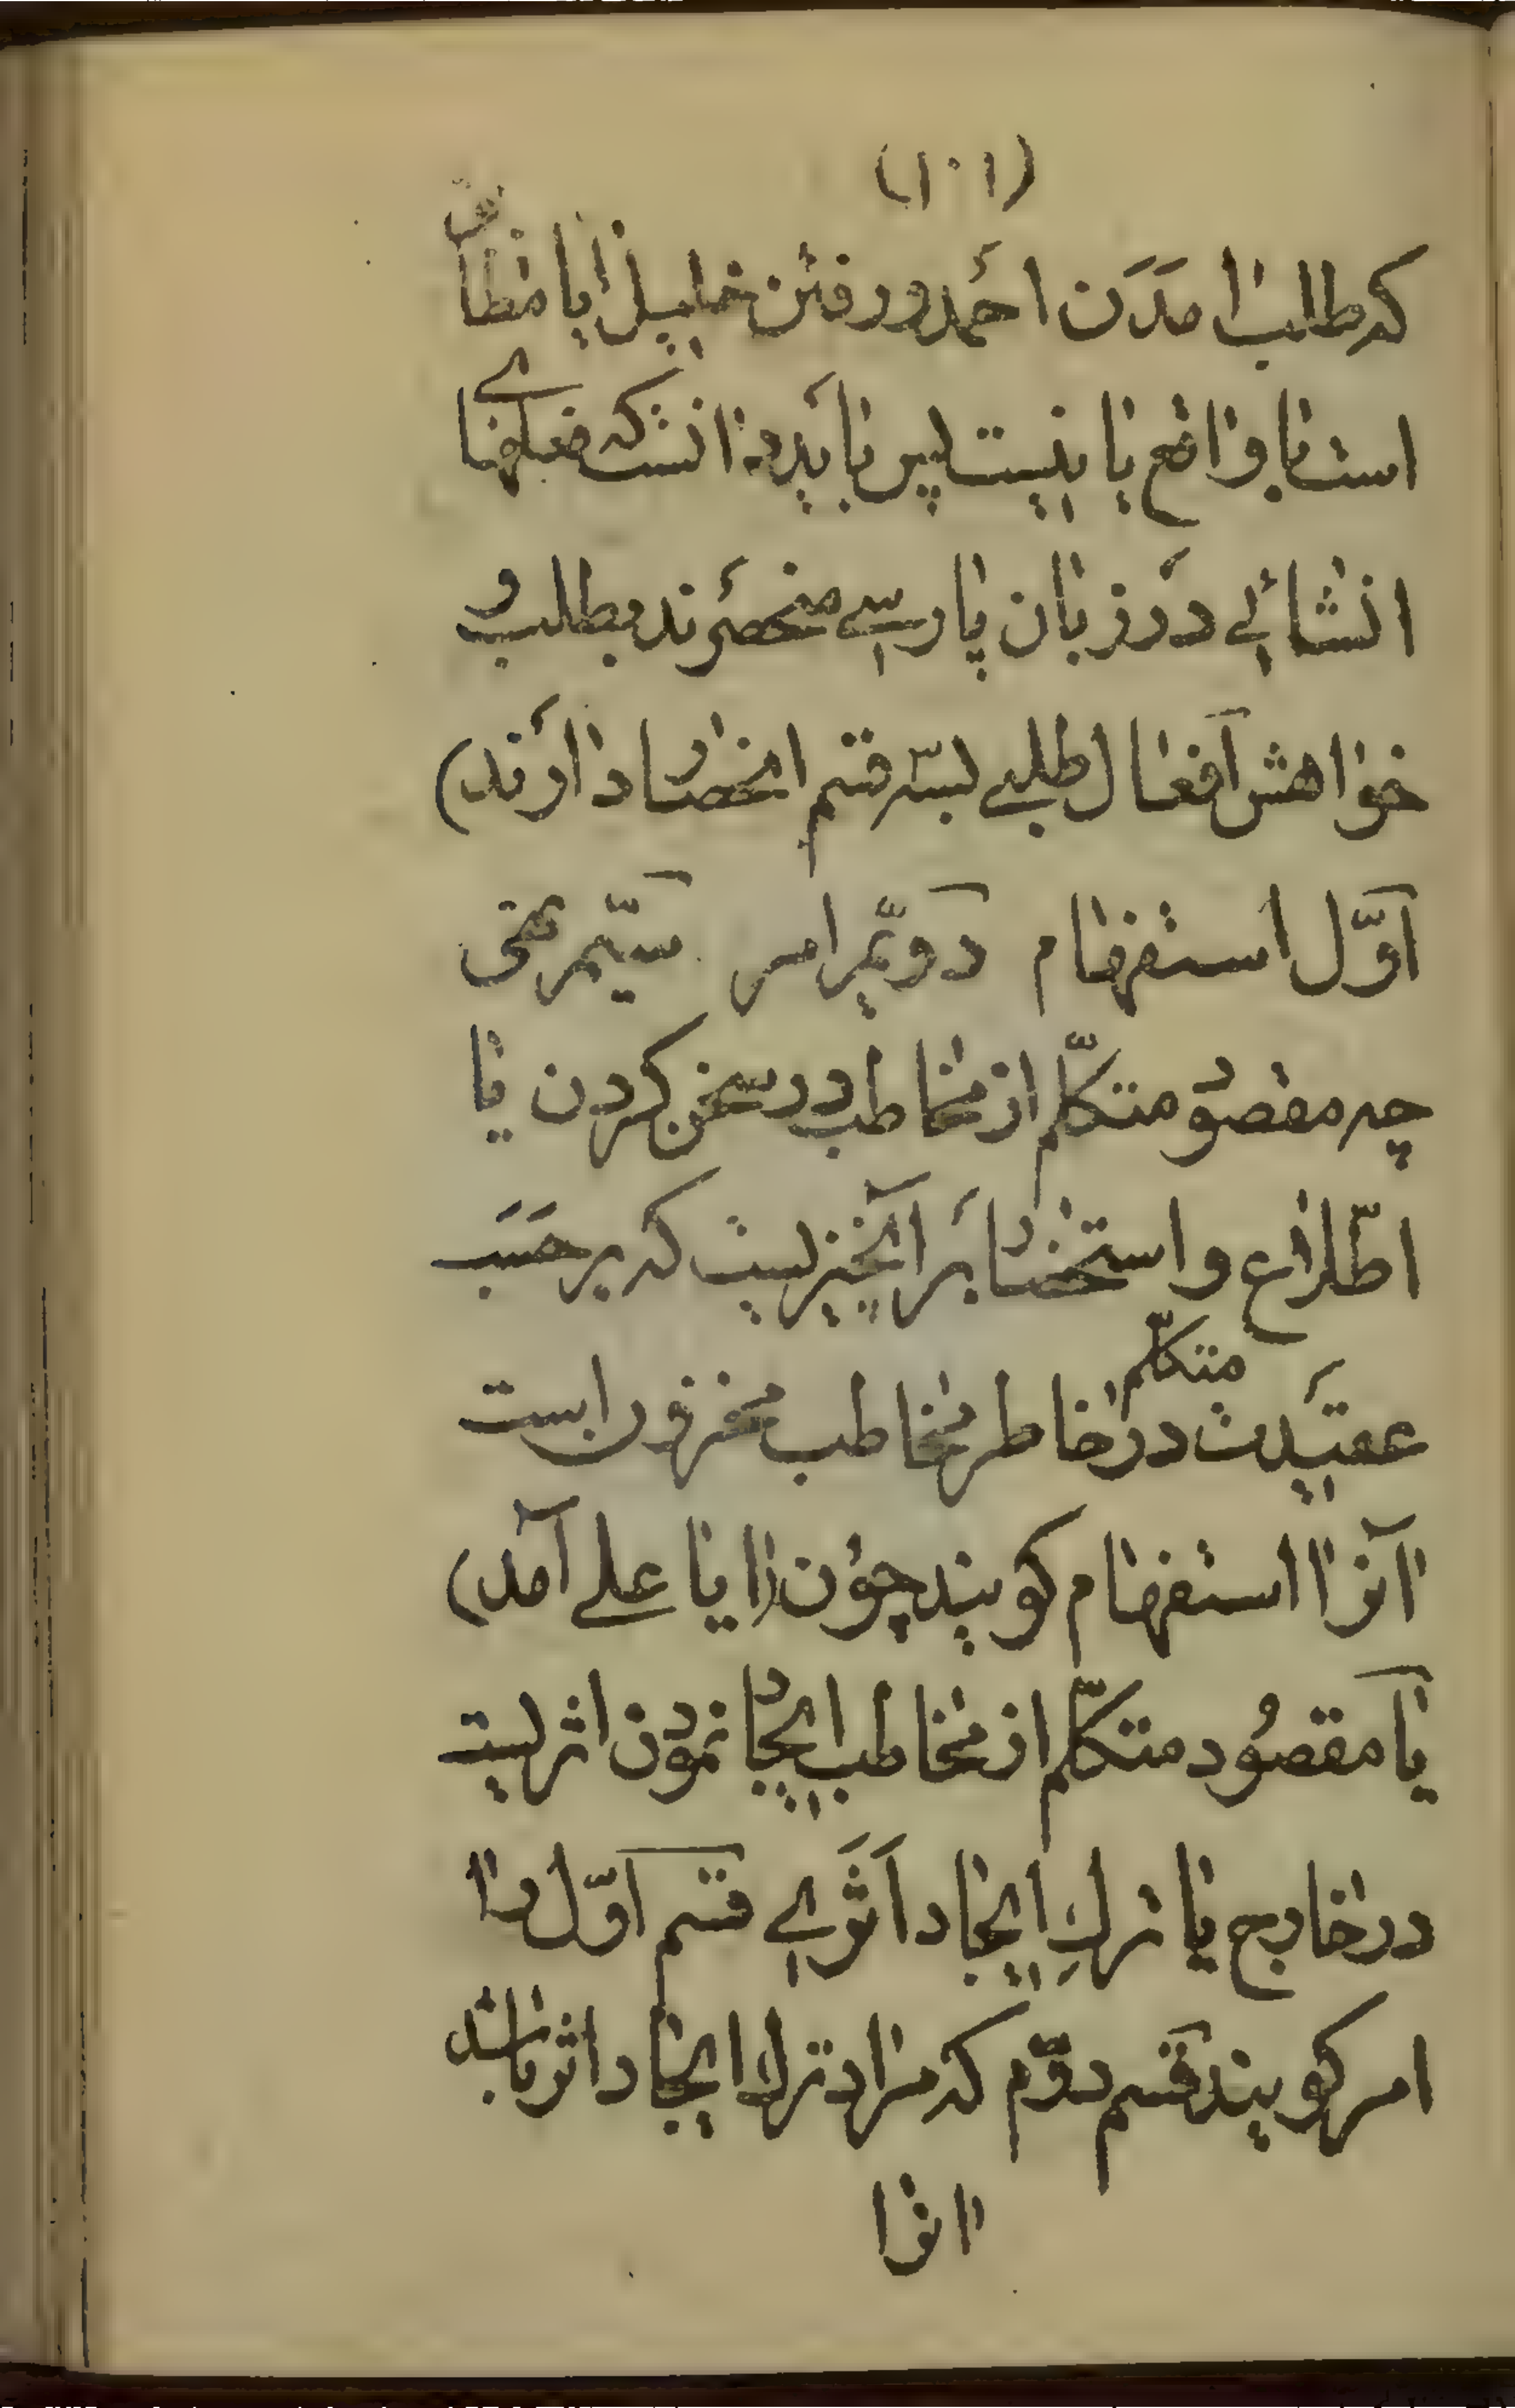 (۱۰۱)
که طلب امدن احمد و رفتن خلیل ایا مطابق
است با واقع یا نیست پس باید دانست که فعلهای
انشائی در زبان پارسی منحصرند بطلب و
خواهش افعال طلبی بسه قسم انحصار دارند)
اوّل استفهام دویّم امر سیّم نهی
چه مقصود متکلّم از مخاطب در سخن کردن یا
اطّلاع و استحضار بر انچیزیست که بر حَسَب
عقیدت متکلّم در خاطر مخاطب مخزون است
آنرا استفهام کویند چون (ایا علی آمد)
یا مقصُود متکلّم از مخاطب ایجاد نمودن اثریست
در خارج یا ترك ایجاد اثری قسم اوّل را
امر کویند قسم دوّم که مراد ترك ایجاد اثر باشد
انرا